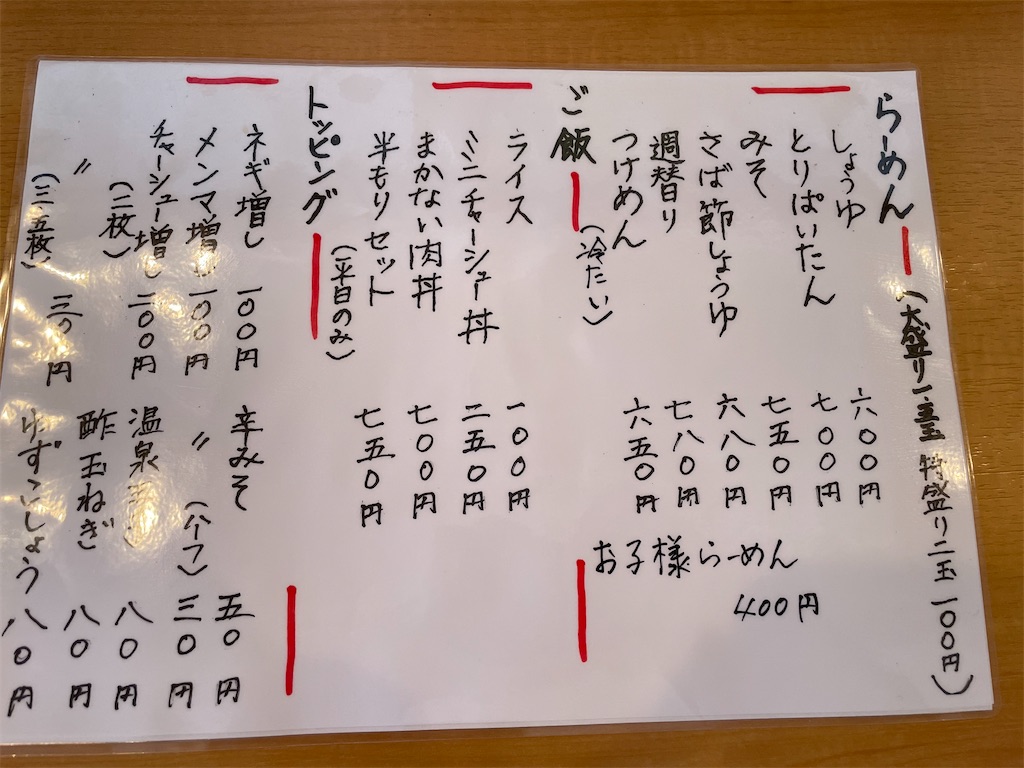 らーめん (大盛り一.五玉 特盛り二玉 一〇〇円)
しょうゆ 六〇〇円
とりぱいたん 七〇〇円
みそ 七五〇円
さば節しょうゆ 六八〇円
週替り 七八〇円
つけめん 六五〇円
(冷たい)
お子様らーめん
400円
ご飯
ライス 一〇〇円
ミニチャーシュー丼 二五〇円
まかない肉丼 七〇〇円
半もりセット 七五〇円
(平日のみ)
トッピング
ネギ増し 一〇〇円
メンマ増し 一〇〇円
チャーシュー増し 二〇〇円
(二枚)
〃 三五〇円
(三五枚)
辛みそ 五〇円
〃 (ハーフ) 三〇円
温泉玉子 八〇円
酢玉ねぎ 八〇円
ゆずこしょう 八〇円